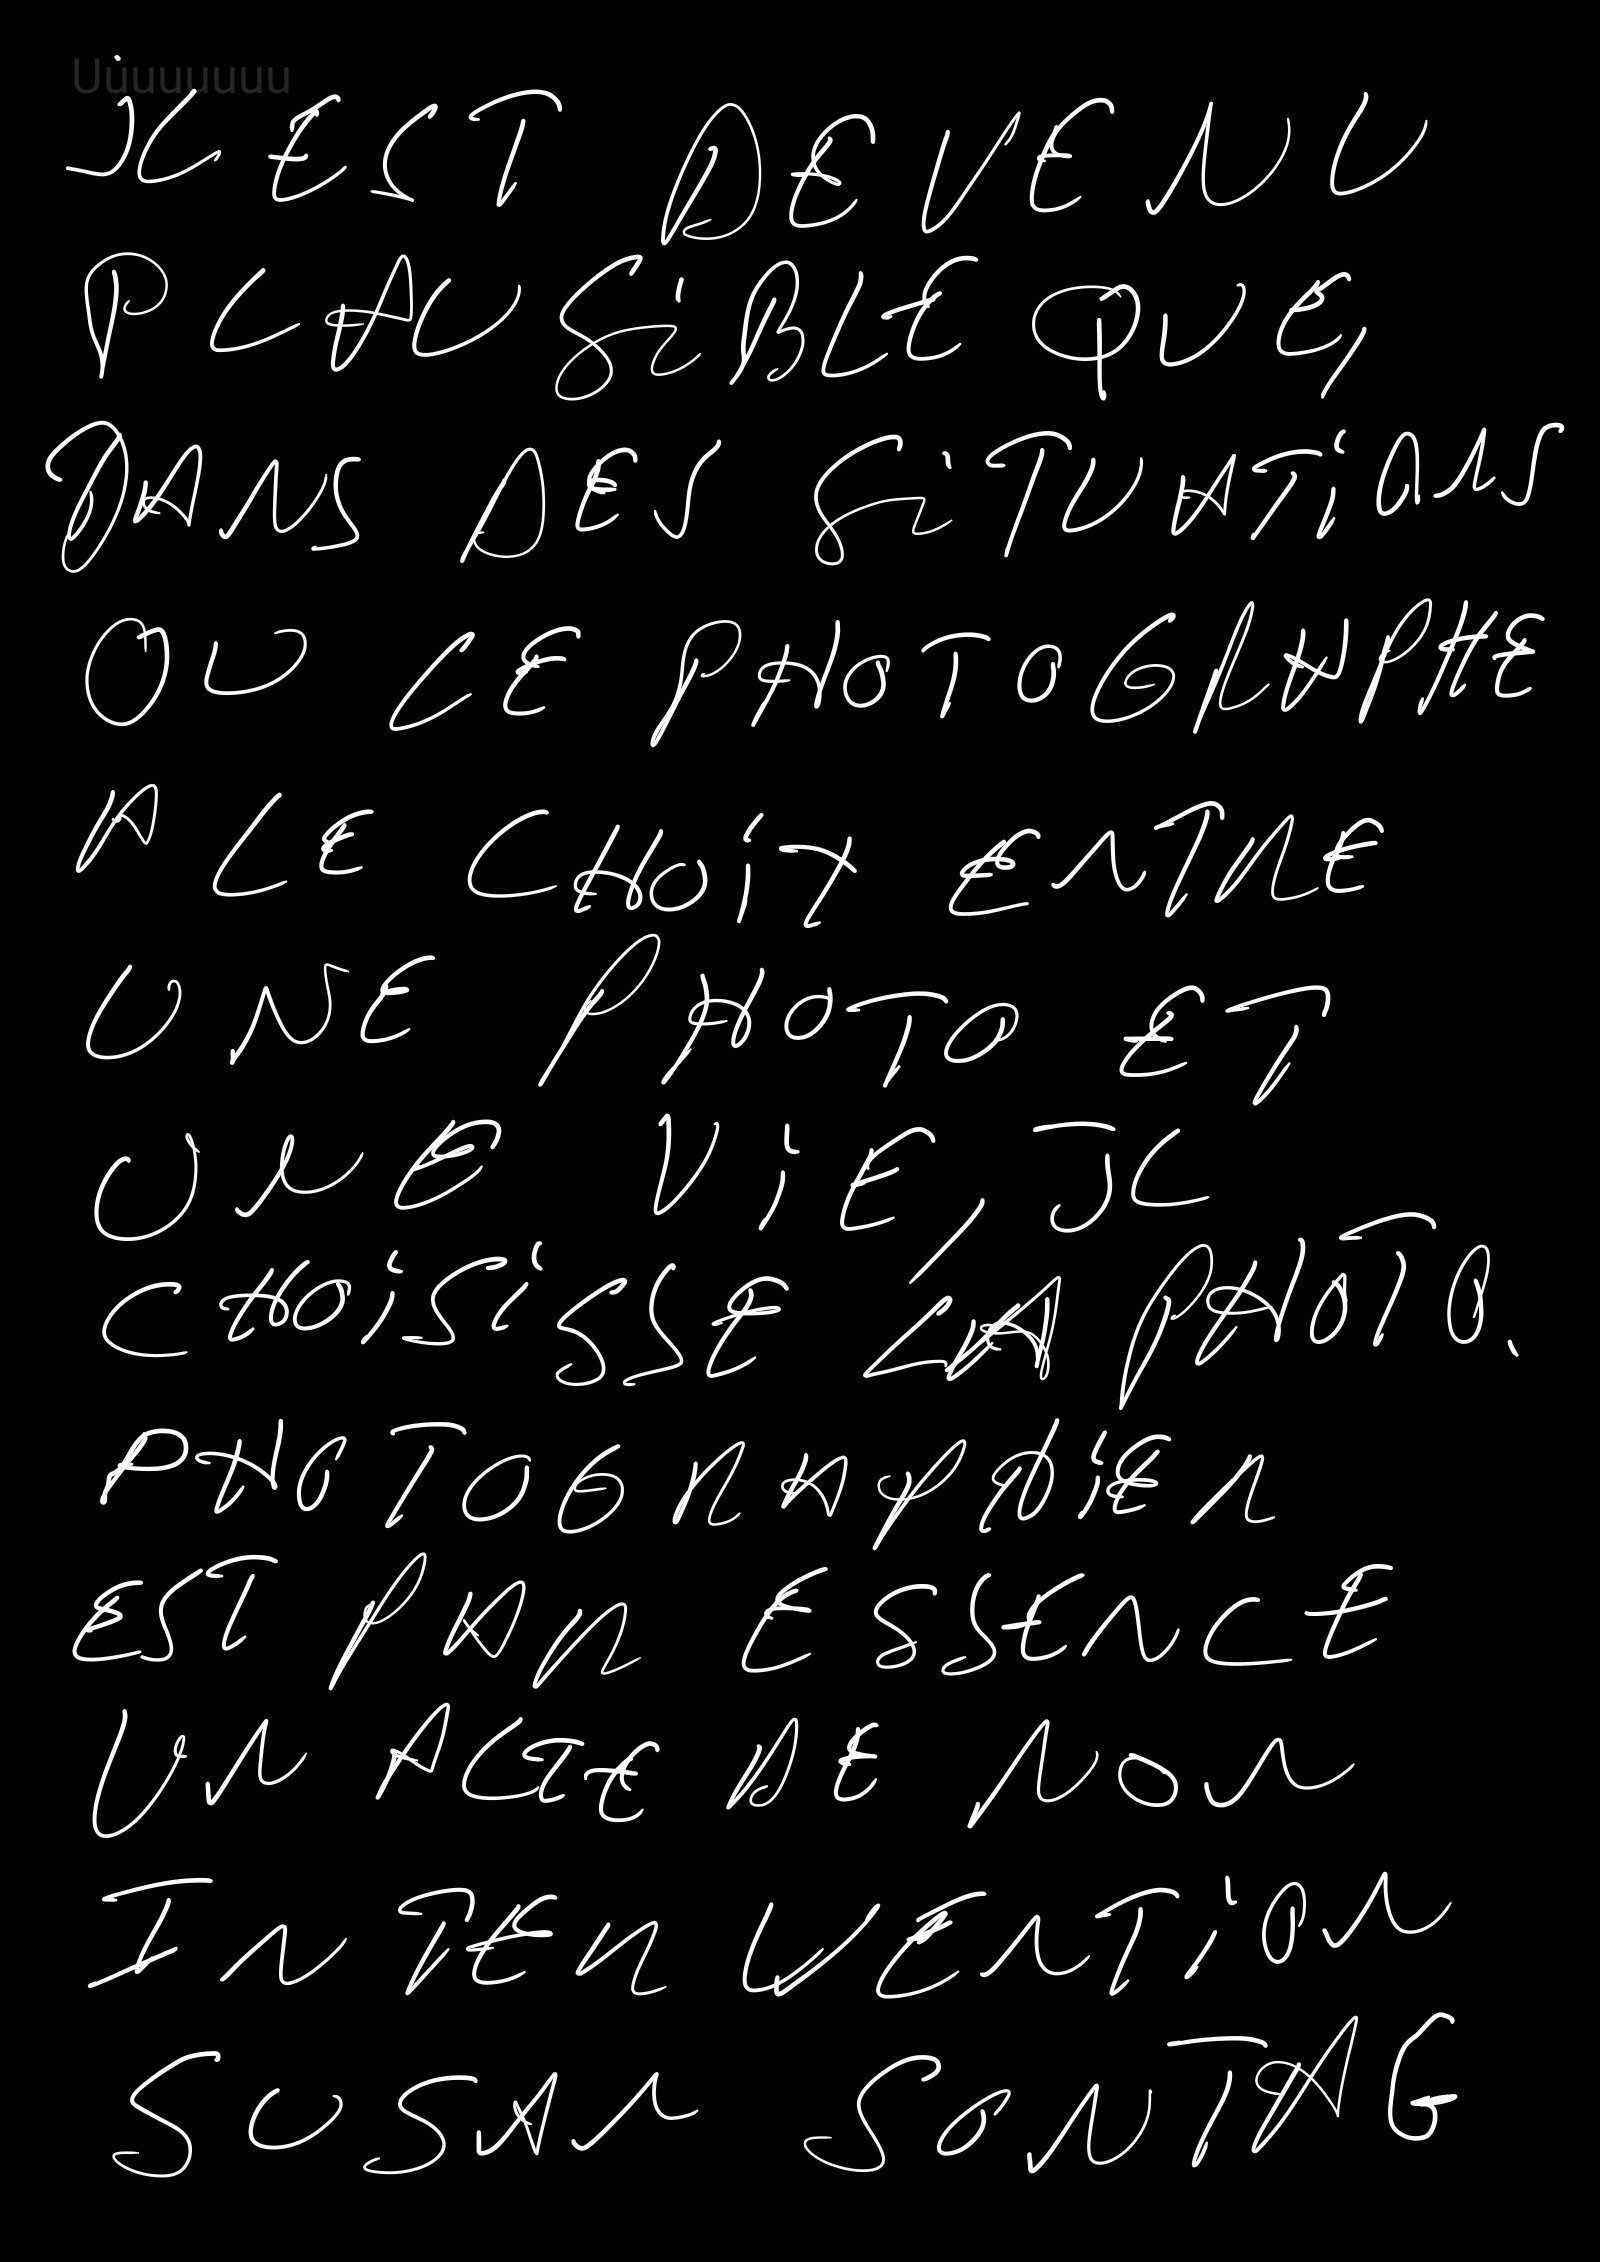 Uuuuuuuu
IL EST DEVENU
PLAUSIBLE QUE,
DANS DES SITUATIONS
OU LE PHOTOGRAPHE
A LE CHOIX ENTRE
UNE PHOTO ET
UNE VIE, IL
CHOISISSE LA PHOTO.
PHOTOGRAPHIER
EST PAR ESSENCE
UN ACTE DE NON
INTERVENTION
SUSAN SONTAG